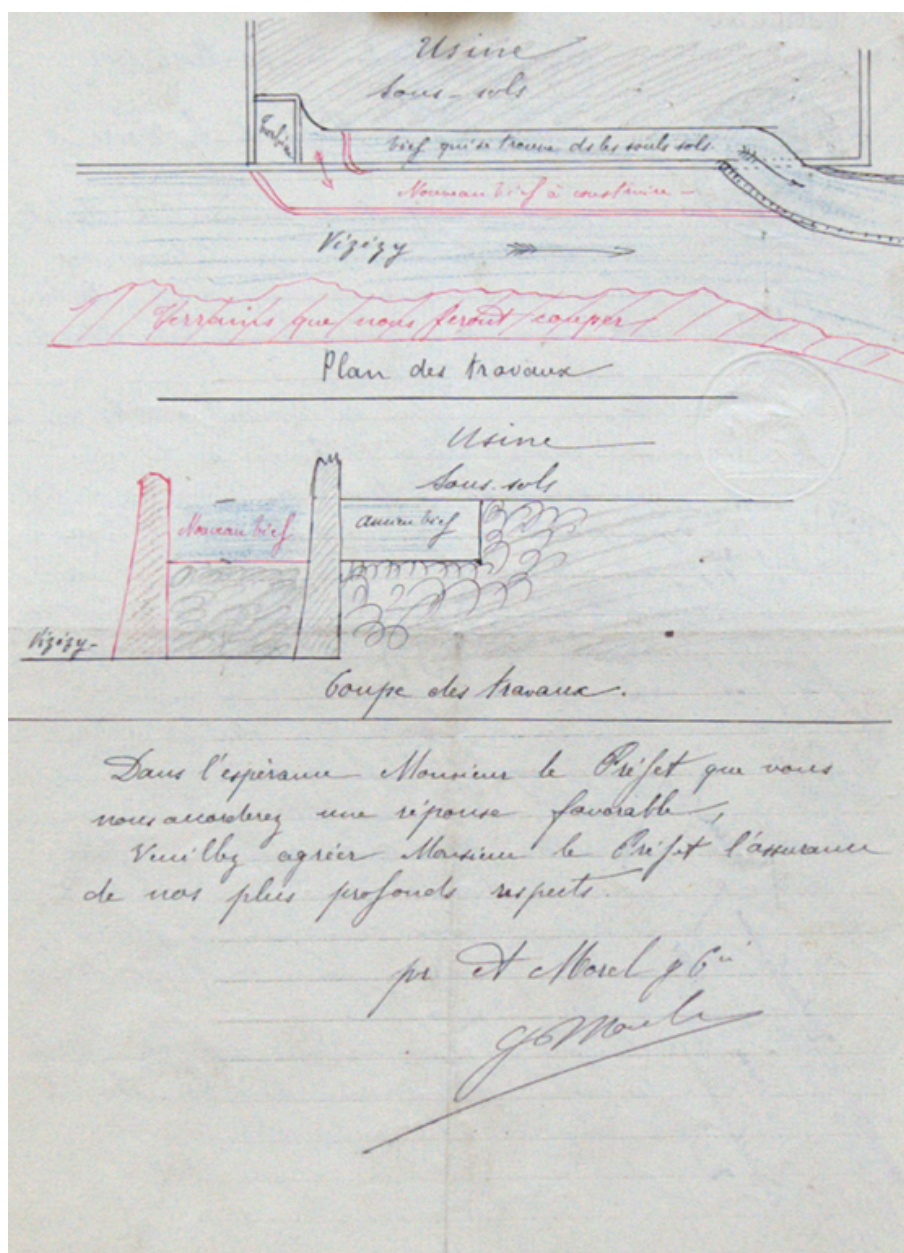 Usine
Sous-sols
Turbine
bief qui se trouve ds les souls sols
Nouveau bief à construire -
Vizézy
Terrains que nous feront couper
Plan des travaux
Usine
Sous-sols
Nouveau bief
ancien bief
Vizézy-
Coupe des travaux.
Dans l'espérance Monsieur le Préfet que vous
nous accorderez une réponse favorable,
Veuillez agréer Monsieur le Préfet l'assurance
de nos plus profonds respects.
pr A Morel & Cie